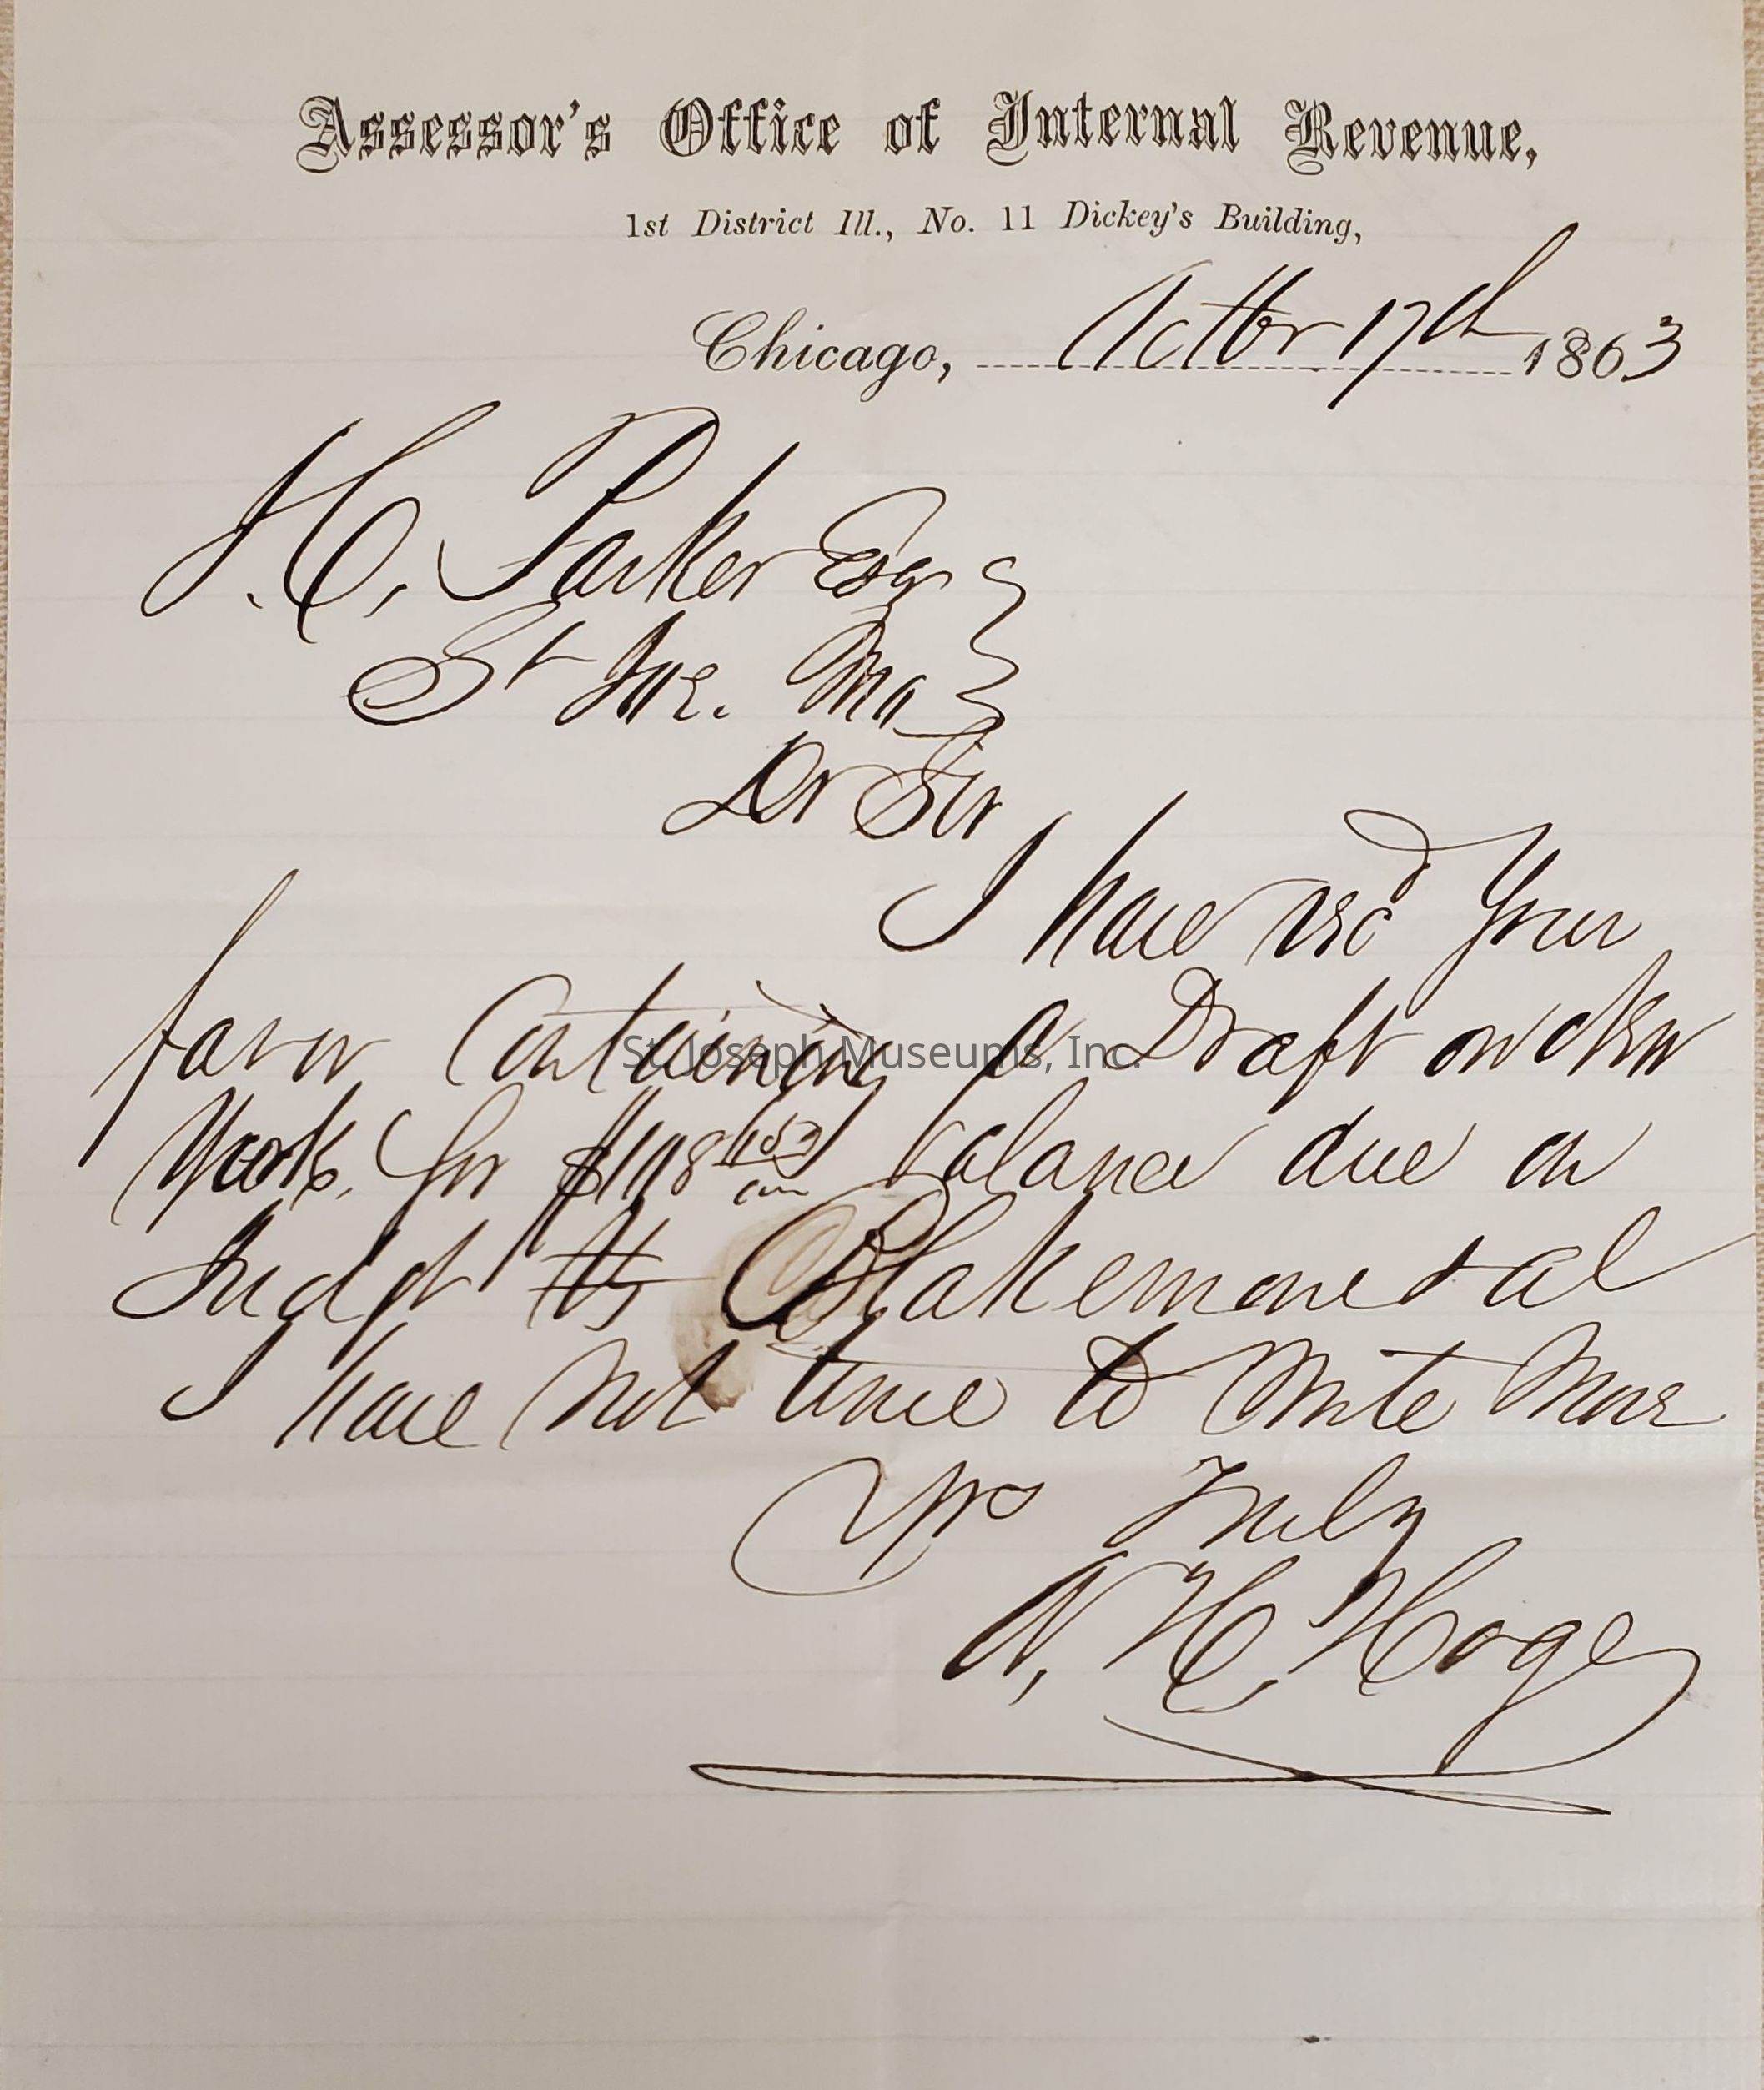 Assessor's Office of Internal Revenue,
1st District Ill., No. 11 Dickey's Building,
Chicago, Octbr 17th 1863
Parker Esqr
St Joe. Mo
Dr Sir
I have recd your
favor Containing a Draft on New
York. for balance due on
Judgt vs Blakemore & al
I have not time to write more
Yrs Truly
A. H. Hoge
St. Joseph Museums, Inc.